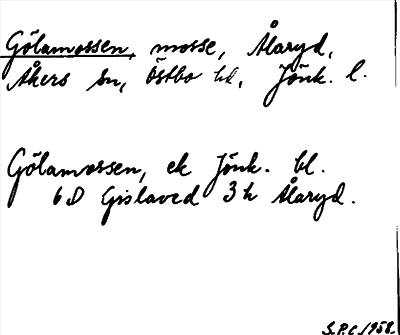 Gölamossen, mosse, Ålaryd,
Åkers sn, Östbo hd, Jönk. l.
Gölamossen, ek Jönk. bl.
6D Gislaved 3h Ålaryd.
S.P.C. 1958.